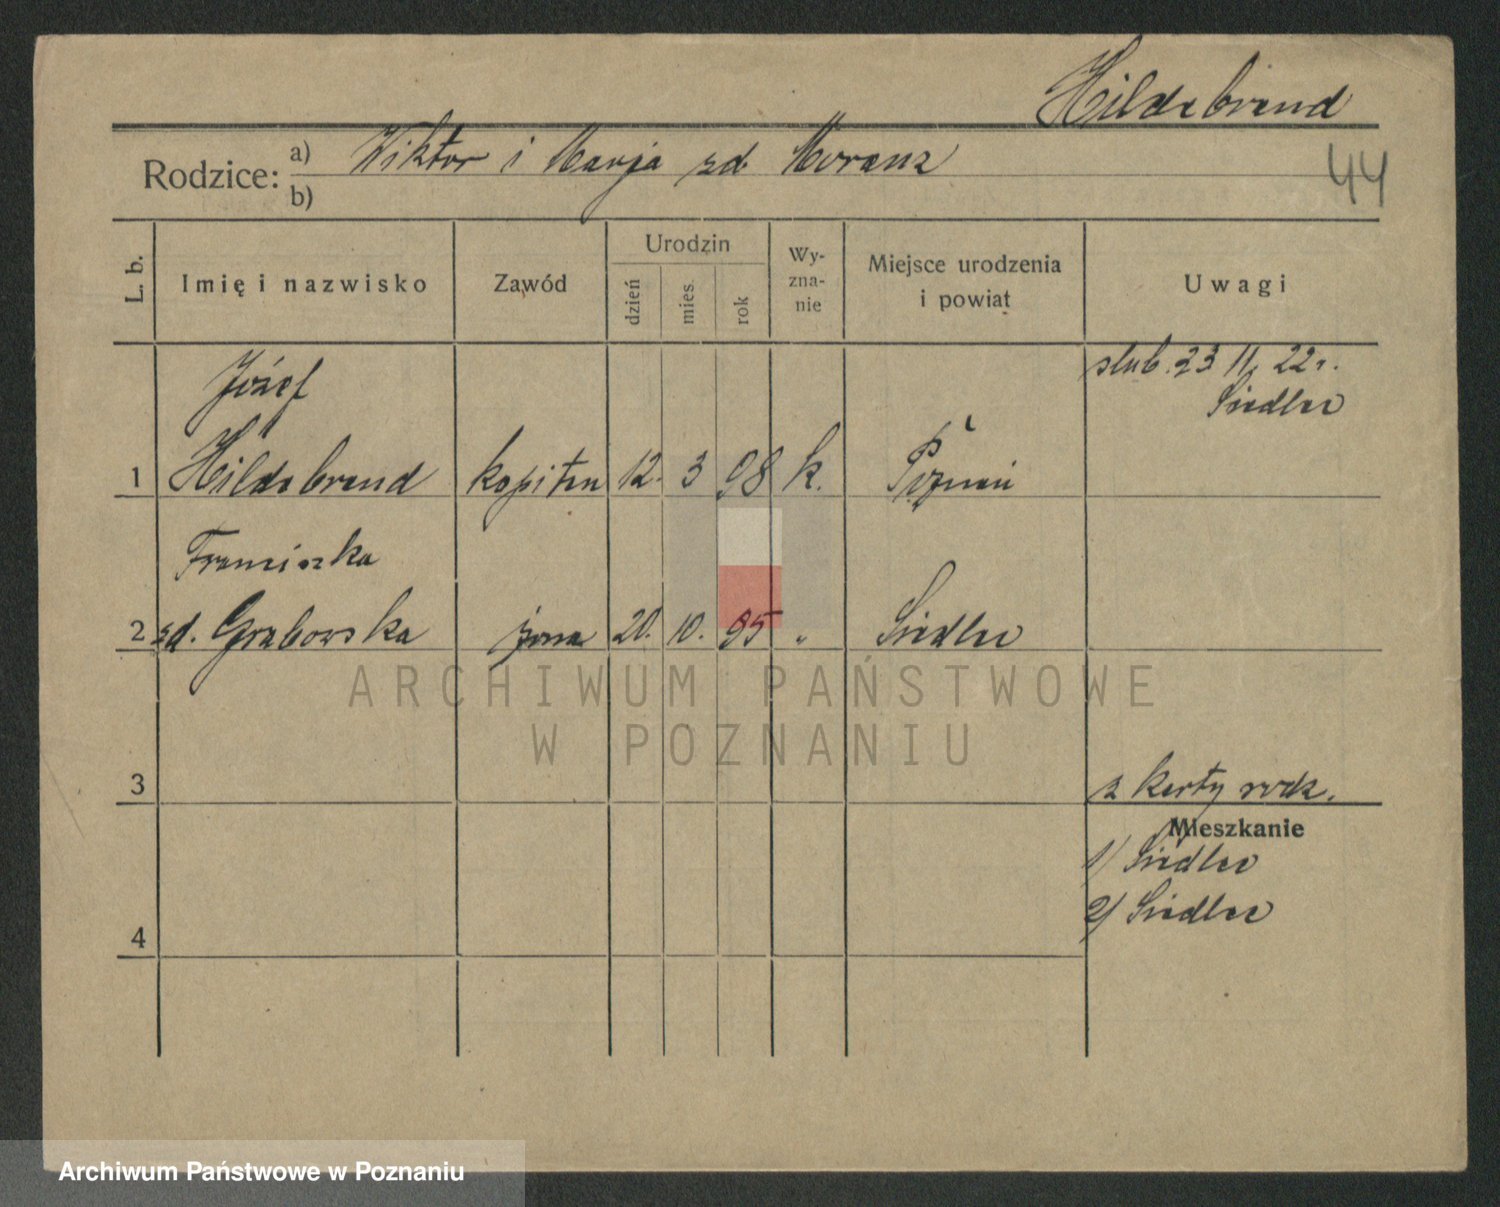 Hildebrand
44
Rodzice: a) Wiktor i Marja zd. Moranz
b)
L. b.
Imię i nazwisko
Zawód
Urodzin
dzień
mies.
rok
Wy-
zna-
nie
Miejsce urodzenia
i powiat
Uwagi
ślub. 23 11. 22 r.
Siedlce
Józef
1 Hildebrand kapitan 12. 3 98 k. Poznań
Franciszka
2 zd. Grabowska żona 20. 10. 95 " Siedlce
3
z karty rodz.
Mieszkanie
1/ Siedlce
2/ Siedlce
4
ARCHIWUM PAŃSTWOWE
W POZNANIU
Archiwum Państwowe w Poznaniu